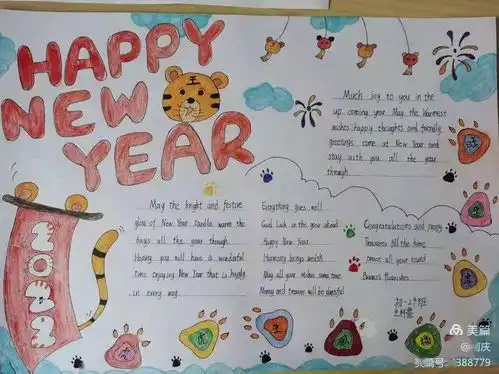 HAPPY
NEW
YEAR
Much joy to you in the
up coming year. May the warmest
wishes, happy thoughts and friendly
greetings come at New Year and
stay with you all the year
through.
May the bright and festive
glow of New Year candle warm the
days all the year through.
Hoping you will have a wonderful
time enjoying New Year that is happy
in every way.
Everything goes well
Good luck in the year ahead
Happy New Year
Harmony brings wealth
May all your wishes come true
Money and treasures will be plentiful
Congratulations and
Treasures fill the home
Peace all year round
Business flourishes
2022
初一2班
美篇
头条号: 388779